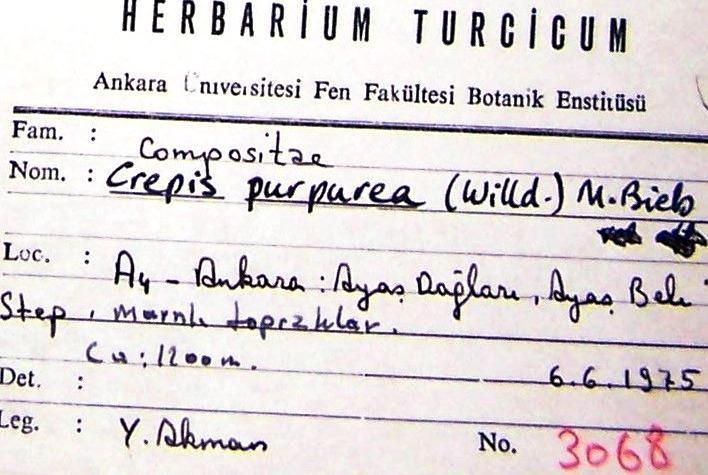 HERBARİUM TURCİCUM
Ankara Üniversitesi Fen Fakültesi Botanik Enstitüsü
Fam. : Compositae
Nom. : Crepis purpurea (Willd.) M.Bieb
Loc. : A4 - Ankara : Ayaş Dağları, Ayaş Beli
Step, marnlı topraklar.
Ca : 1200 m. 6.6.1975
Det. :
Leg. : Y. Akman No. 3068